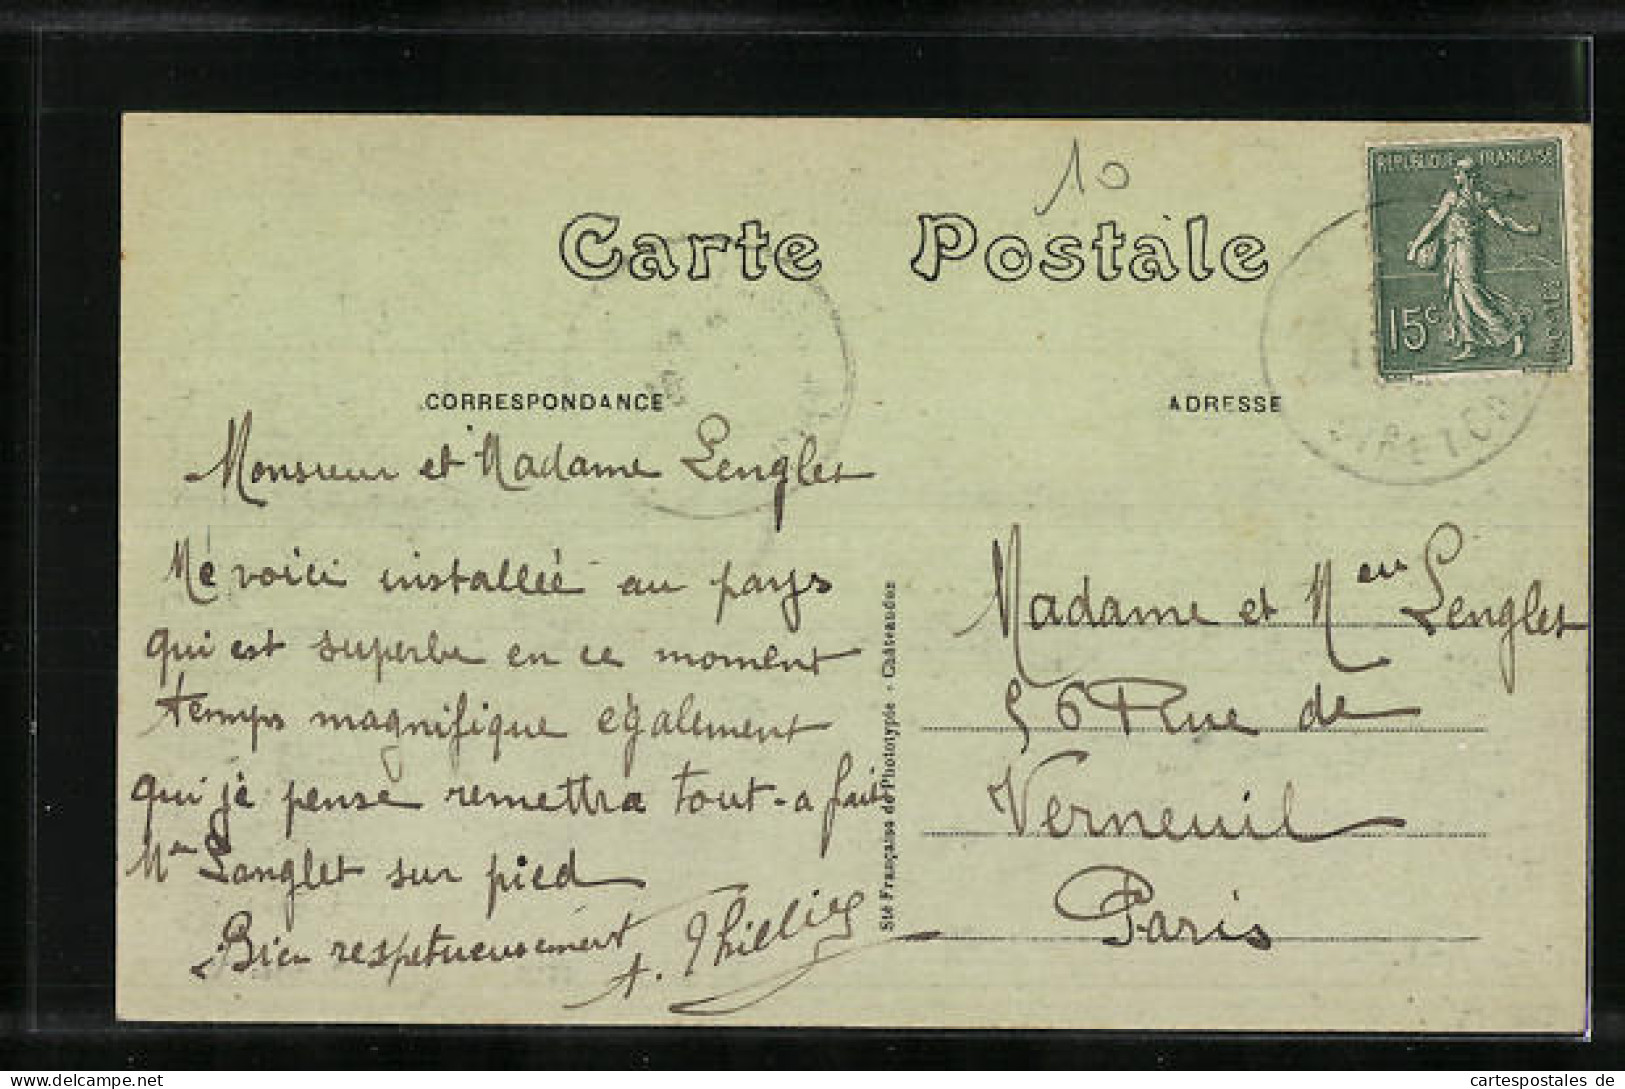 10
Carte Postale
REPUBLIQUE FRANÇAISE
15c
CORRESPONDANCE
ADRESSE
Monsieur et Madame Lenglet
Me voici installée au pays
qui est superbe en ce moment
temps magnifique également
qui je pense remettra tout-a fait
Mme Langlet sur pied
Bien respetueusement
Sté Française de Phototypie - Châteaudun
Madame et Meur Lenglet
56 Rue de
Verneuil
Paris
cartespostales de